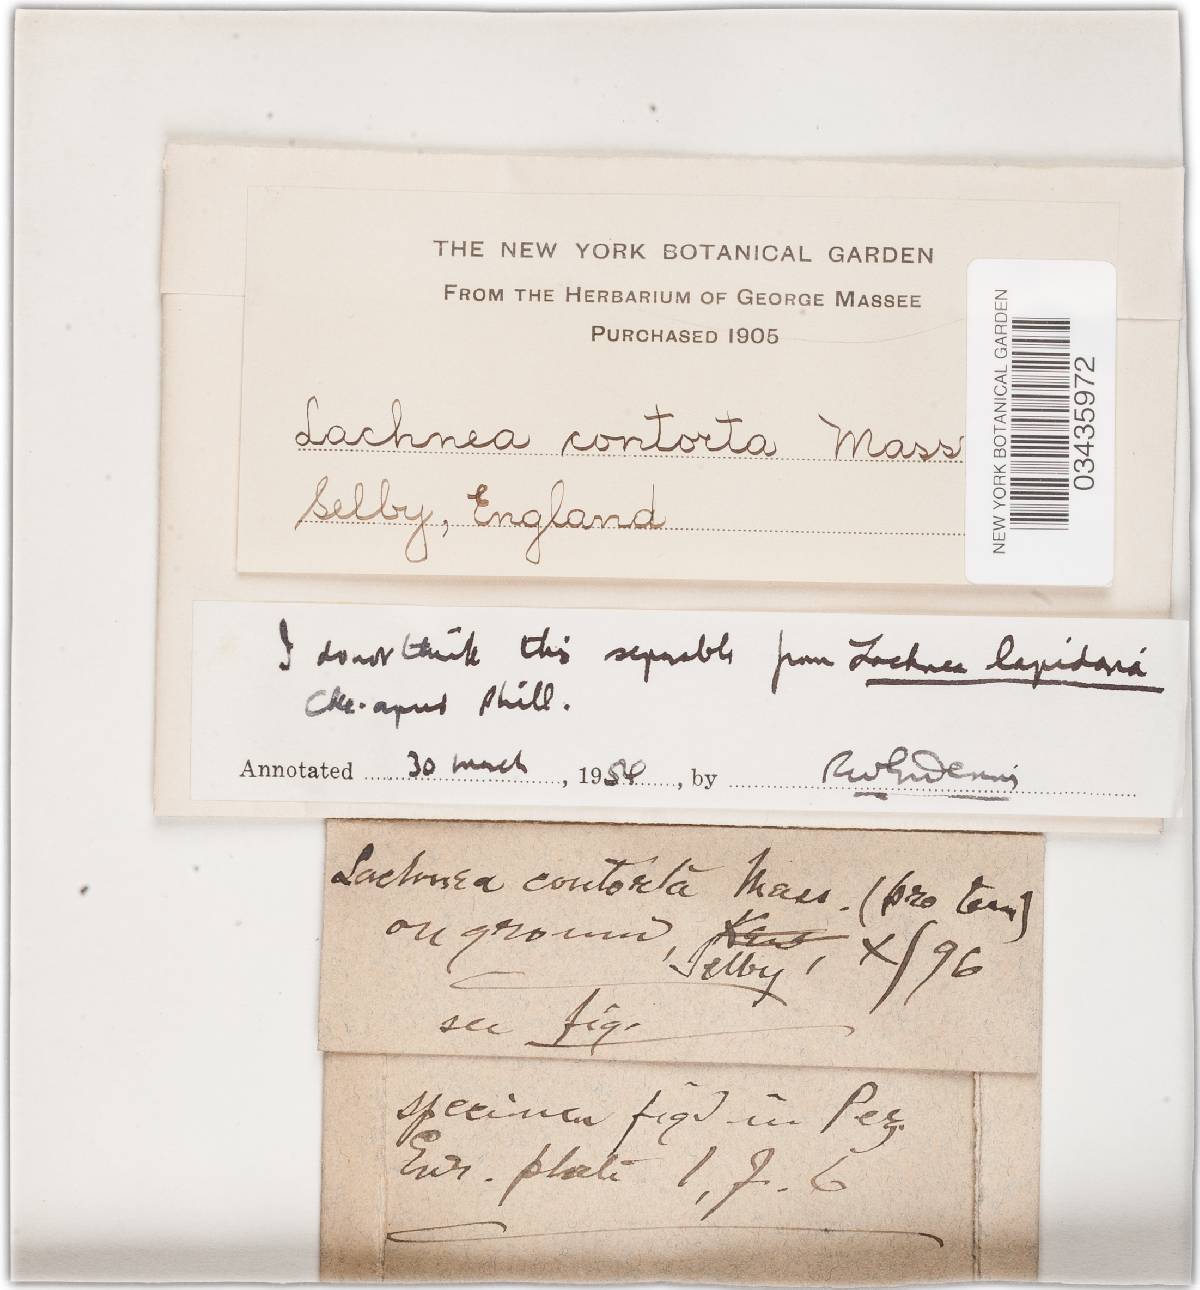 THE NEW YORK BOTANICAL GARDEN
FROM THE HERBARIUM OF GEORGE MASSEE
PURCHASED 1905
Lachnea contorta Mass
Selby, England
NEW YORK BOTANICAL GARDEN
03435972
I do not think this separable from Lachnea lapidaria
Cke. apud Phill.
Annotated 30 March, 1954, by RWG Dennis
Lachnea contorta Mass. (pro tem)
on ground, Kew, X/96
Selby,
see fig.
specimen figd in Pez.
Eur. plate 1, f. 6